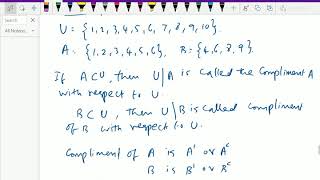 U = {1, 2, 3, 4, 5, 6, 7, 8, 9, 10}.
A = {1, 2, 3, 4, 5, 6}, B = {4, 6, 8, 9}.
If A ⊂ U, then U \ A is called the Compliment A
with respect to U.
B ⊂ U, then U \ B is called Compliment
of B with respect to U.
Compliment of A is A' or Aᶜ
B is B' or Bᶜ